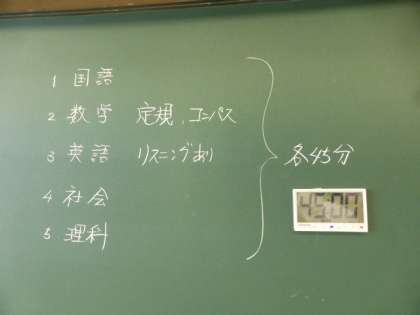 1 国語
2 数学 定規、コンパス
3 英語 リスニングあり
4 社会
5 理科
各45分
45:00